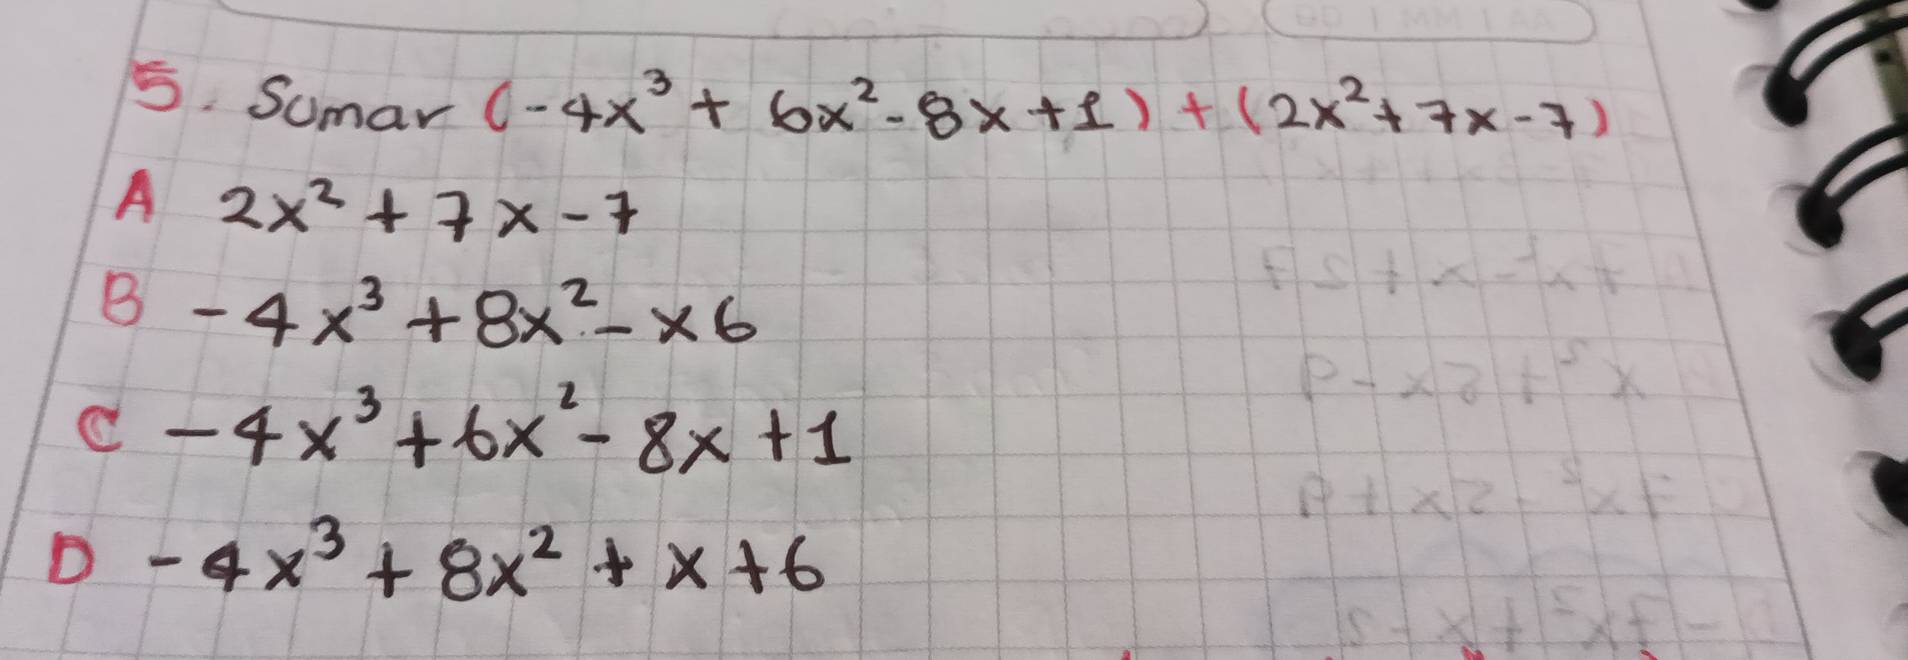 5. Sumar (-4x³ + 6x² - 8x + 1) + (2x² + 7x - 7)
A 2x² + 7x - 7
B -4x³ + 8x² - x6
C -4x³ + 6x² - 8x + 1
D -4x³ + 8x² + x + 6